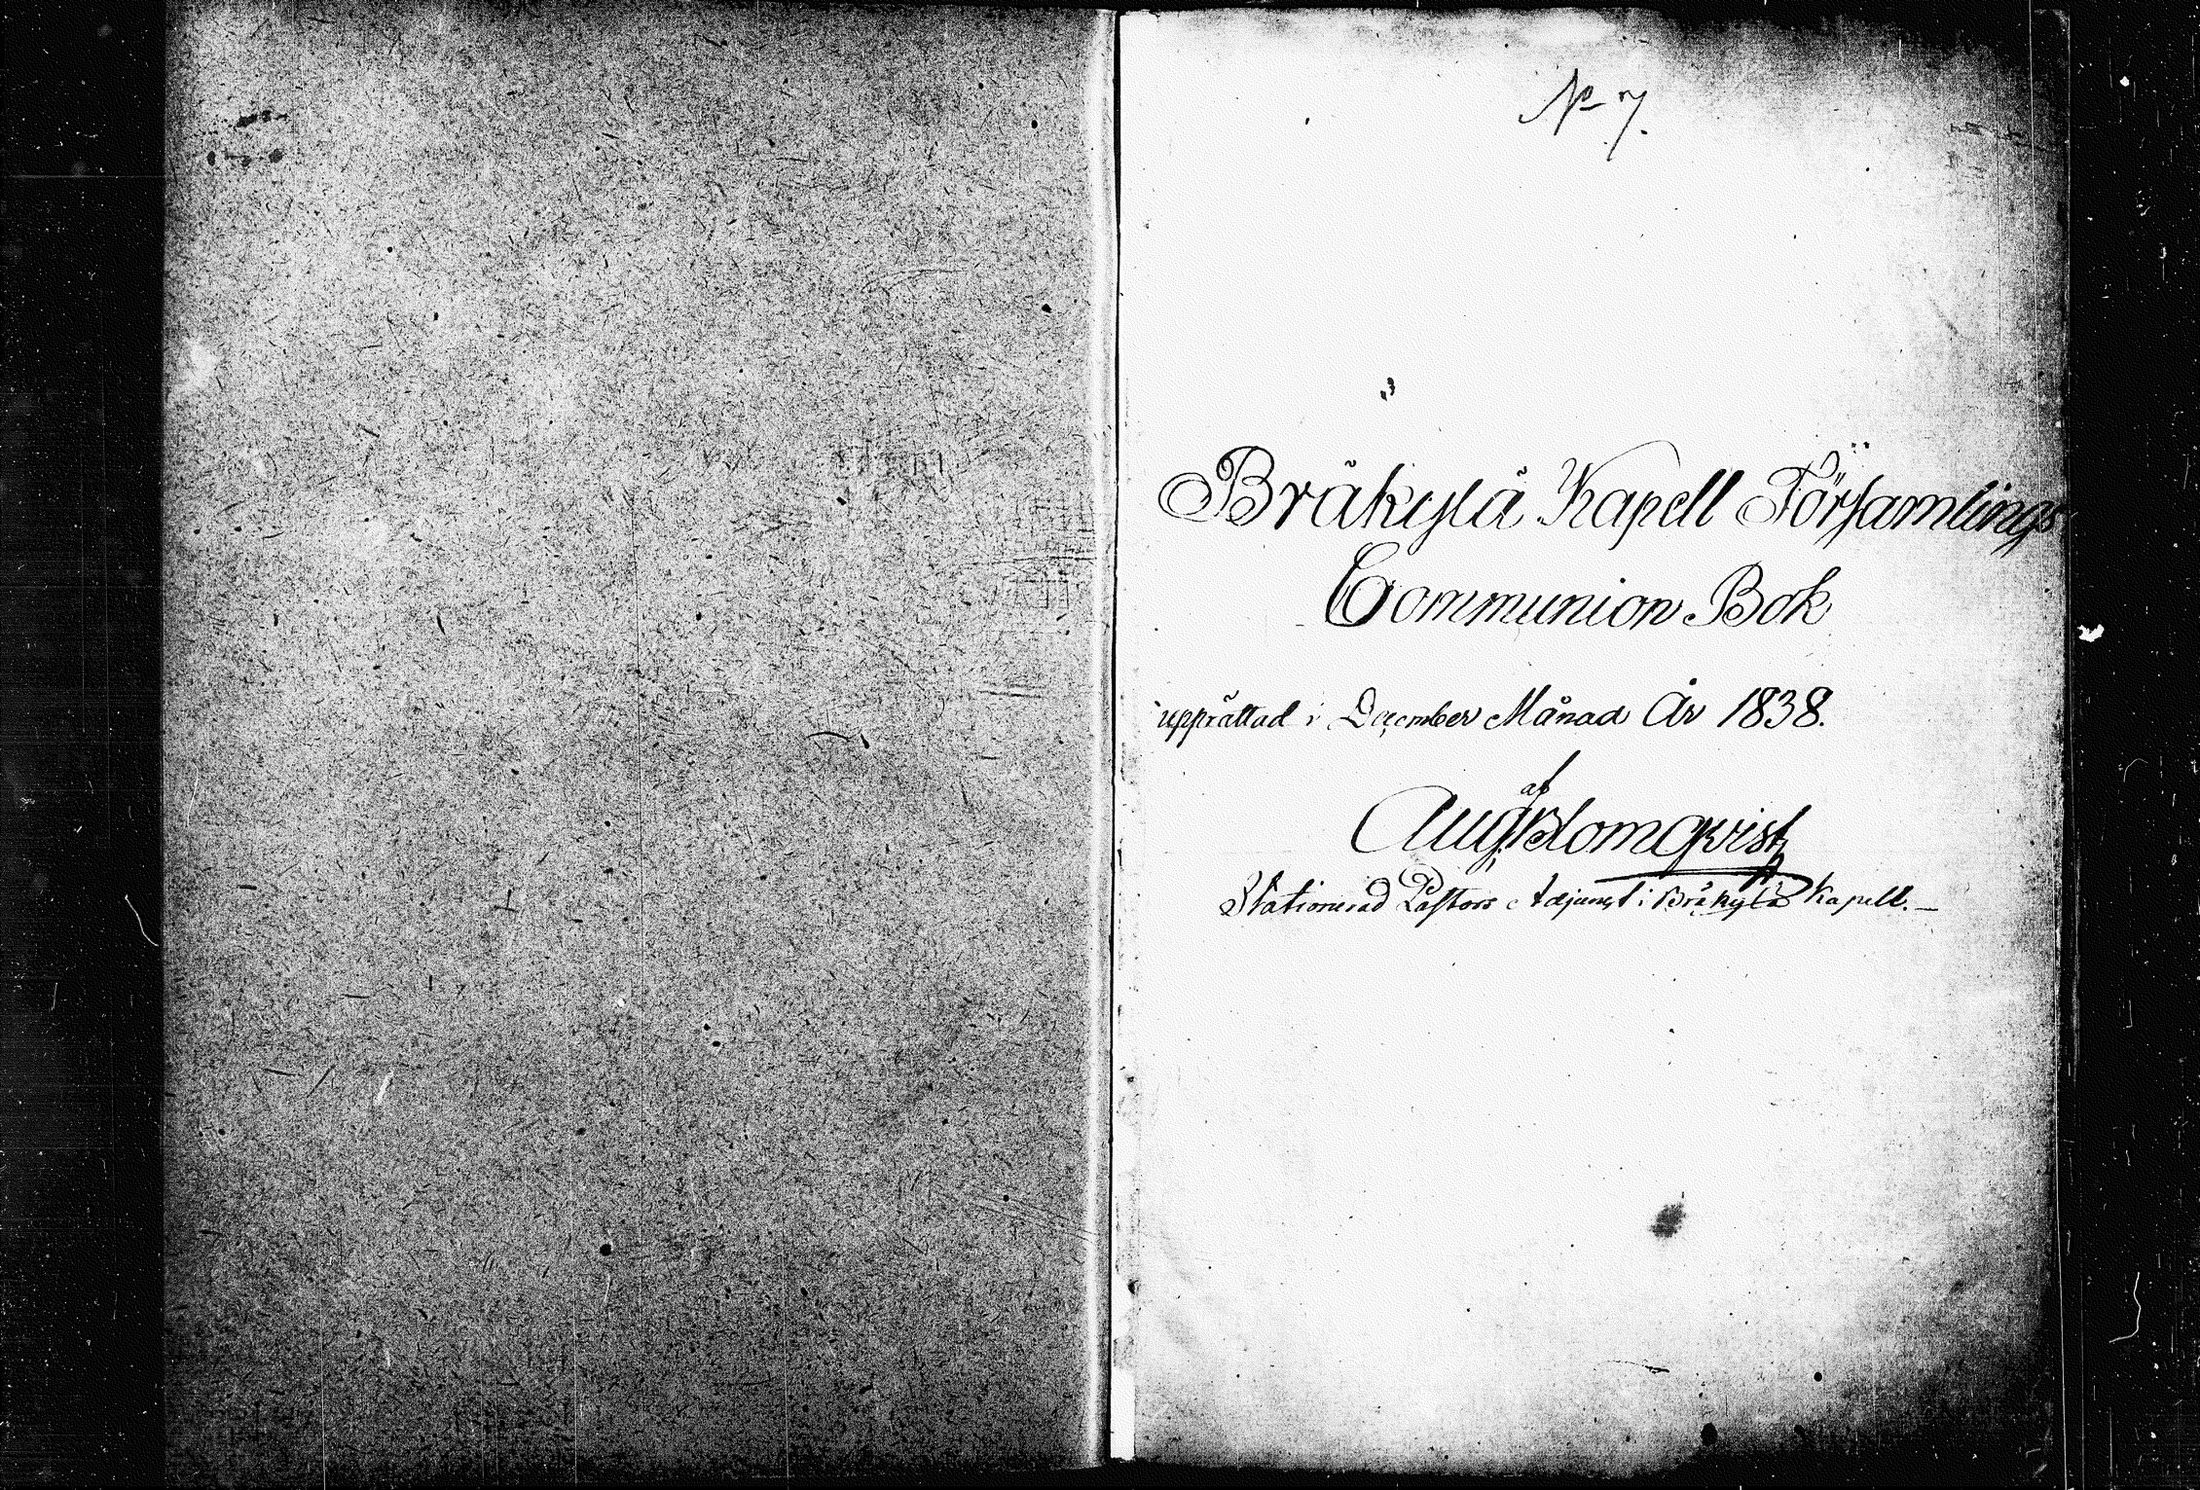 No 7.
Bräkylä Kapell Församlings
Communion Bok
upprättad i December Månad År 1838.
af
Aug. Blomqvist
Stationerad Pastors Adjunct i Bräkylä Kapell.